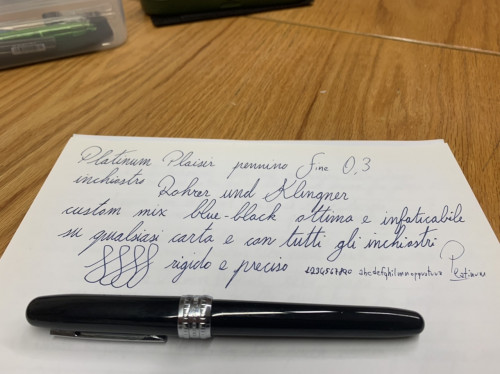 Platinum Plaisir pennino fine 0,3
inchiostro Rohrer und Klingner
custom mix blue-black ottima e infaticabile
su qualsiasi carta e con tutti gli inchiostri
rigido e preciso 1234567890 abcdefghilmnopqrstuvz Platinum